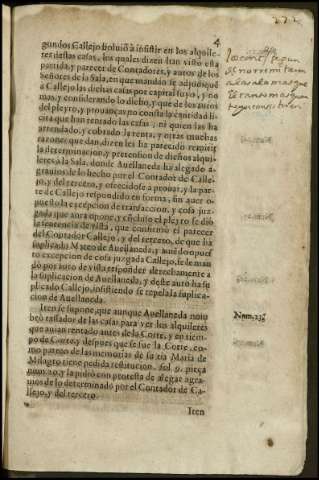 4
gundos Callejo boluiò à insistir en los alquile-
res destas casas, los quales dizen han visto esta
partida, y parecer de Contadores, y autos de los
señores de la Sala, en que mandò se adjudiquẽ
a Callejo las dichas casas por capital suyo, y no
mas, y considerando lo dicho, y que de los autos
del pleyto, y prouanças no consta la cantidad li-
cita que han rentado las casas, ni quien las ha
arrendado, y cobrado la renta, y otras muchas
razones que dan, dizen les ha parecido remitir
la determinacion, y pretension de dichos alqui-
leres a la Sala, donde Auellaneda ha alegado a-
grauios de lo hecho por el Contador de Calle-
jo, y del tercero, y ofrecidose a prouar, y la par-
te de Callejo respondido en forma, sin auer o-
puesto la excepcion de transaccion, y cosa juz-
gada que aora opone, y cõcluso el pleyto se diò
la sentencia de vista, que confirmò el parecer
del Contador Callejo, y del tercero, de que ha
suplicado Mateo de Auellaneda, y auiẽdo opues
to excepcion de cosa juzgada Callejo, se le man
dò por auto de vista responder derechamente a
la suplicacion de Auellaneda, y deste auto ha su
plicado Callejo, insistiendo se repela la suplica-
cion de Auellaneda.
Iten se supone, que aunque Auellaneda nom
brò tassador de las casas para ver los alquileres
que auian rentado antes de la Corte, y en tiem-
po de Corte, y despues que se fue la Corte, co-
mo patron de las memorias de su tia Maria de
Milagro tiene pedida restitucion, fol. 9. pieça
num. 20. y la pidiò con protesta de alegar agra-
uios de lo determinado por el Contador de Ca-
llejo, y del tercero.
Iten
Num. 23.